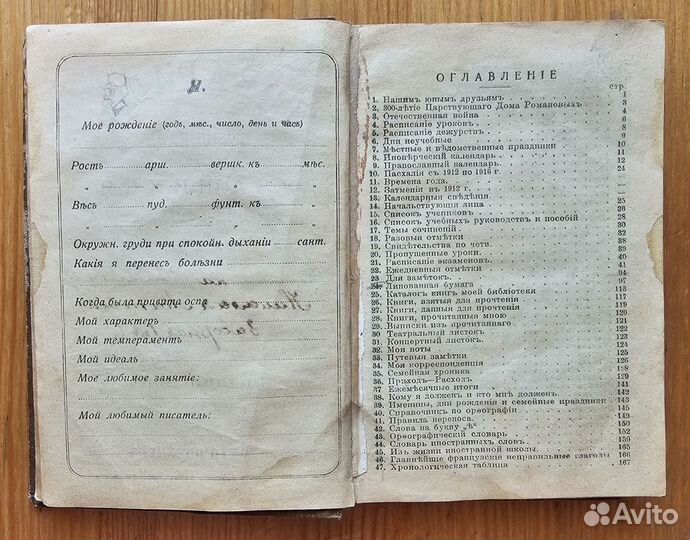 Я.
Мое рожденіе (годъ, мѣс., число, день и часъ)
Ростъ арш. вершк. къ мѣс.
„ „ „ „
Вѣсъ пуд. фунт. къ „
„ „ „ „
Окружн. груди при спокойн. дыханіи сант.
Какія я перенесъ болѣзни
Когда была привита оспа
Мой характеръ
Мой темпераментъ
Мой идеалъ
Мое любимое занятіе:
Мой любимый писатель:
ОГЛАВЛЕНІЕ
стр.
1. Нашимъ юнымъ друзьямъ 1
2. 300-лѣтіе Царствующаго Дома Романовыхъ 3
3. Отечественная война 4
4. Расписаніе уроковъ 6
5. Расписаніе дежурствъ 8
6. Дни неучебные 9
7. Мѣстные и вѣдомственные праздники 10
8. Иновѣрческій календарь 11
9. Православный календарь 12
10. Пасхалія съ 1912 по 1916 г. 24
11. Времена года —
12. Затменія въ 1912 г. —
13. Календарныя свѣдѣнія 25
14. Начальствующія лица 25
15. Списокъ учениковъ 26
16. Списокъ учебныхъ руководствъ и пособій 28
17. Темы сочиненій 30
18. Разовыя отмѣтки 32
19. Свидѣтельства по четв. 38
20. Пропущенные уроки 39
21. Расписаніе экзаменовъ 40
22. Ежедневныя отмѣтки 41
23. Для замѣтокъ 94
24. Линованная бумага 97
25. Каталогъ книгъ моей библіотеки 113
26. Книги, взятыя для прочтенія 117
27. Книги, данныя для прочтенія 118
28. Книги, прочитанныя мною 119
29. Выписки изъ прочитаннаго 120
30. Театральный листокъ 121
31. Концертный листокъ 122
32. Мои ноты 124
33. Путевыя замѣтки 125
34. Моя корреспонденція 126
35. Семейная хроника 128
36. Приходъ—Расходъ 129
37. Ежемѣсячные итоги 141
38. Кому я долженъ и кто мнѣ долженъ 142
39. Именины, дни рожденія и семейные праздники 143
40. Справочникъ по орѳографіи 145
41. Правила переноса 149
42. Слова на букву „ѣ“ 150
43. Орѳографическій словарь 152
44. Словарь иностранныхъ словъ 159
45. Изъ жизни иностранной школы 165
46. Главнѣйшіе французскіе неправильные глаголы 166
47. Хронологическая таблица 167
Avito